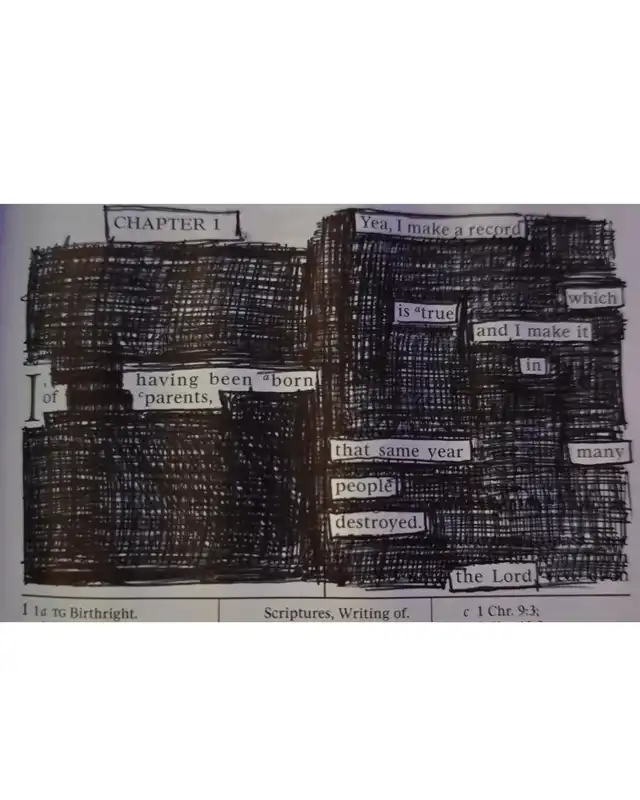 CHAPTER 1
I, having been ᵃborn
of ᶜparents,
Yea, I make a record
which
is ᵃtrue
and I make it
in
that same year many
people
destroyed.
the Lord
1 1a TG Birthright.
Scriptures, Writing of.
c 1 Chr. 9:3;